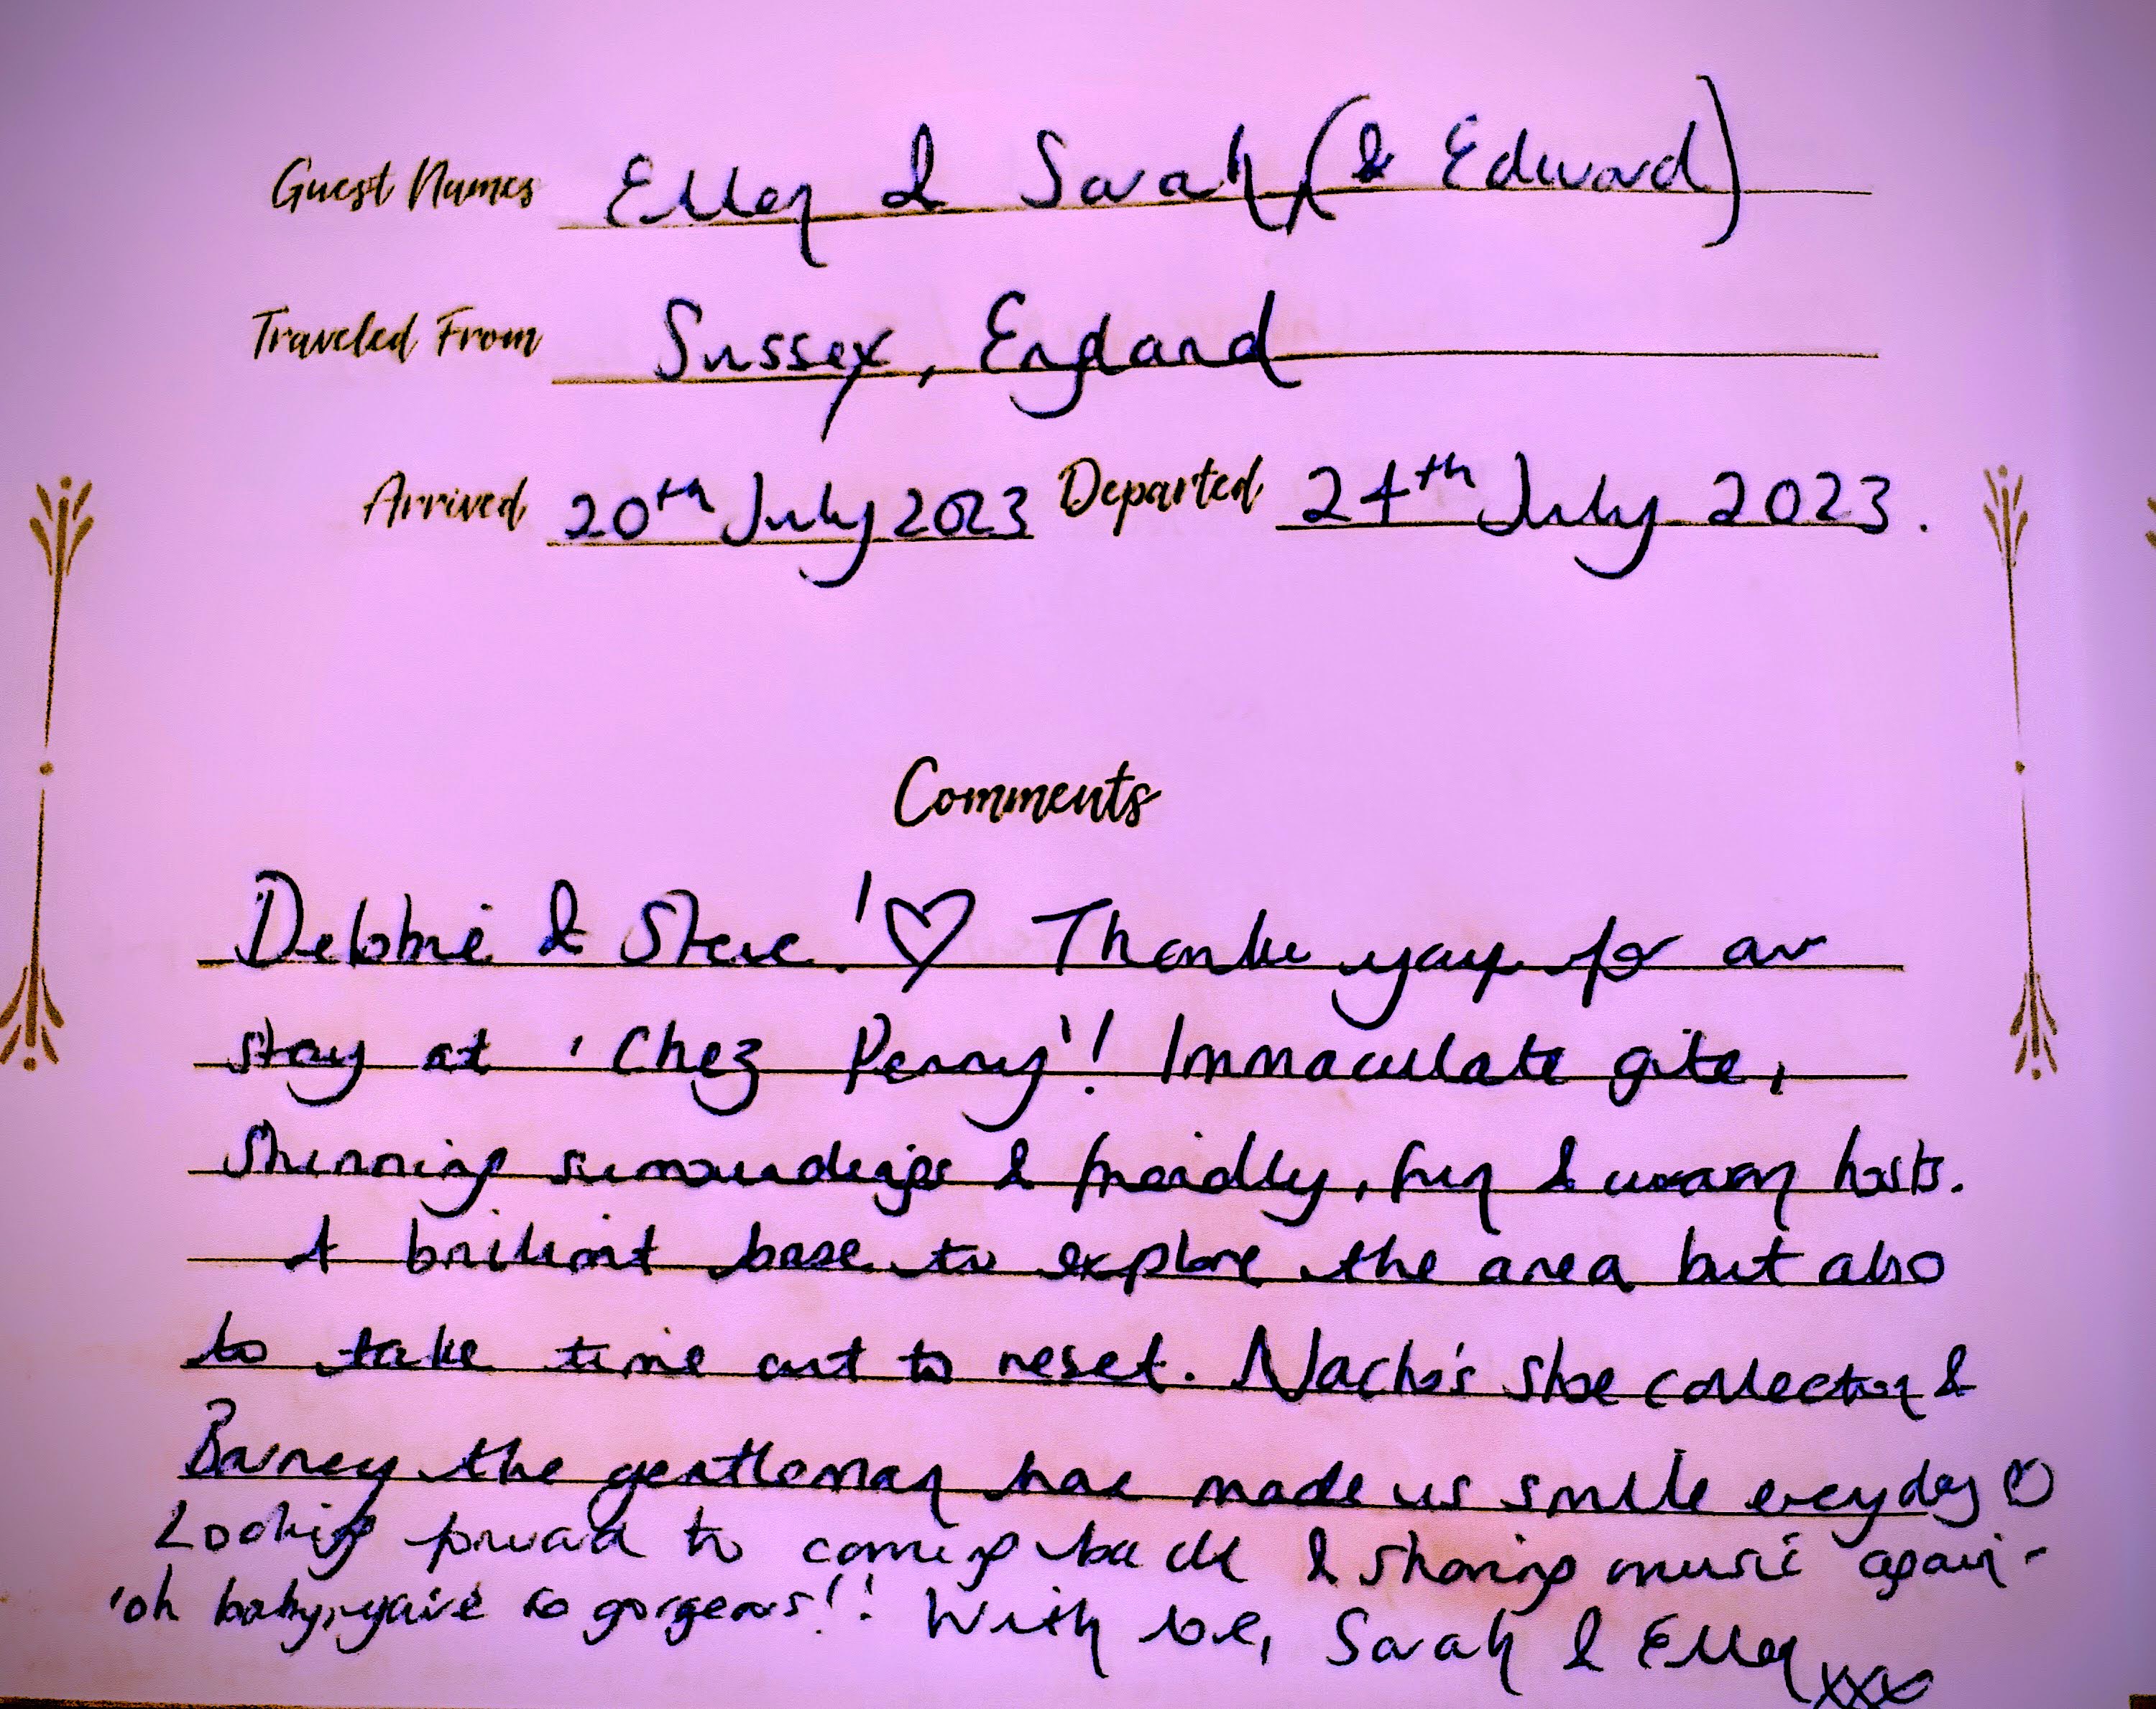 Guest Names Ellen & Sarah (& Edward)
Traveled From Sussex, England
Arrived 20th July 2023 Departed 24th July 2023.
Comments
Debbie & Steve! ♡ Thank you for our
stay at 'Chez Perry'! Immaculate gite,
stunning surroundings & friendly, fun & warm hosts.
A brilliant base to explore the area but also
to take time out to reset. Nacho's shoe collection &
Barney the gentleman have made us smile everyday ♡
Looking forward to coming back & sharing music again -
'oh baby, you're so gorgeous'! With love, Sarah & Ellen xxx